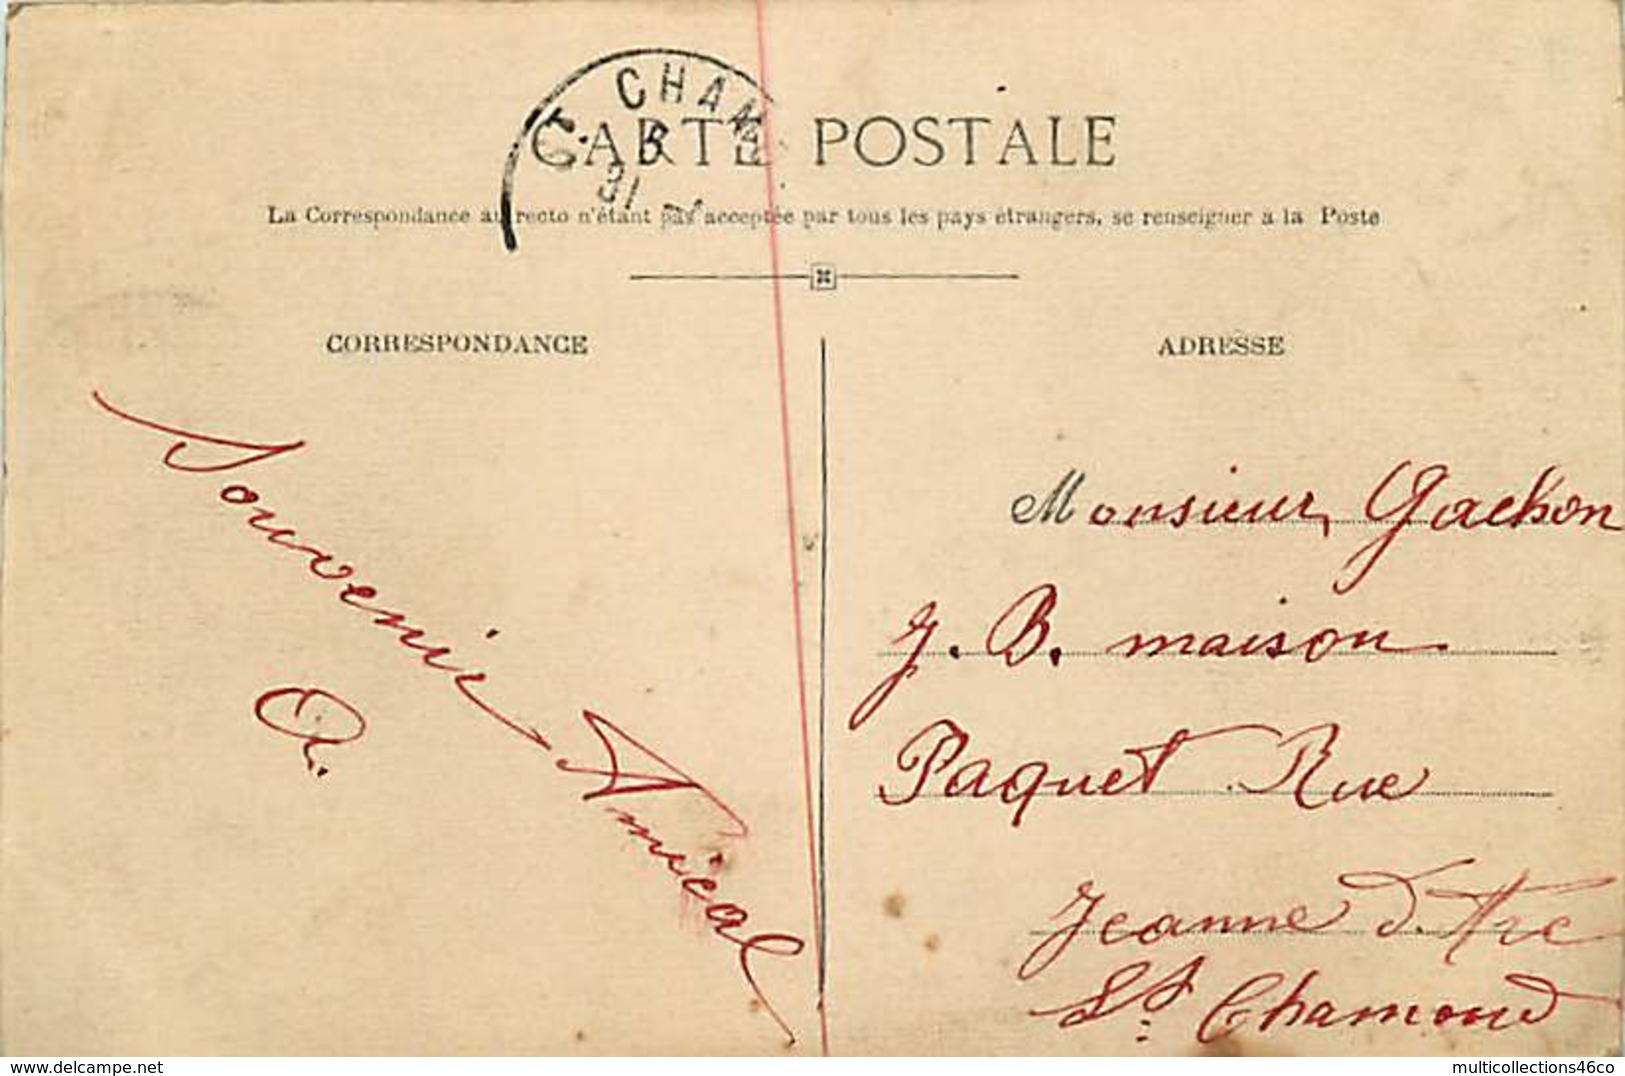 ST. CHAM
8
31
CARTE POSTALE
La Correspondance au recto n'étant pas acceptée par tous les pays étrangers, se renseigner a la Poste
CORRESPONDANCE
Souvenir Amical
A.
ADRESSE
Monsieur Gachon
J. B. maison
Paquet Rue
Jeanne d'Arc
St Chamond
www.delcampe.net
multicollections46co